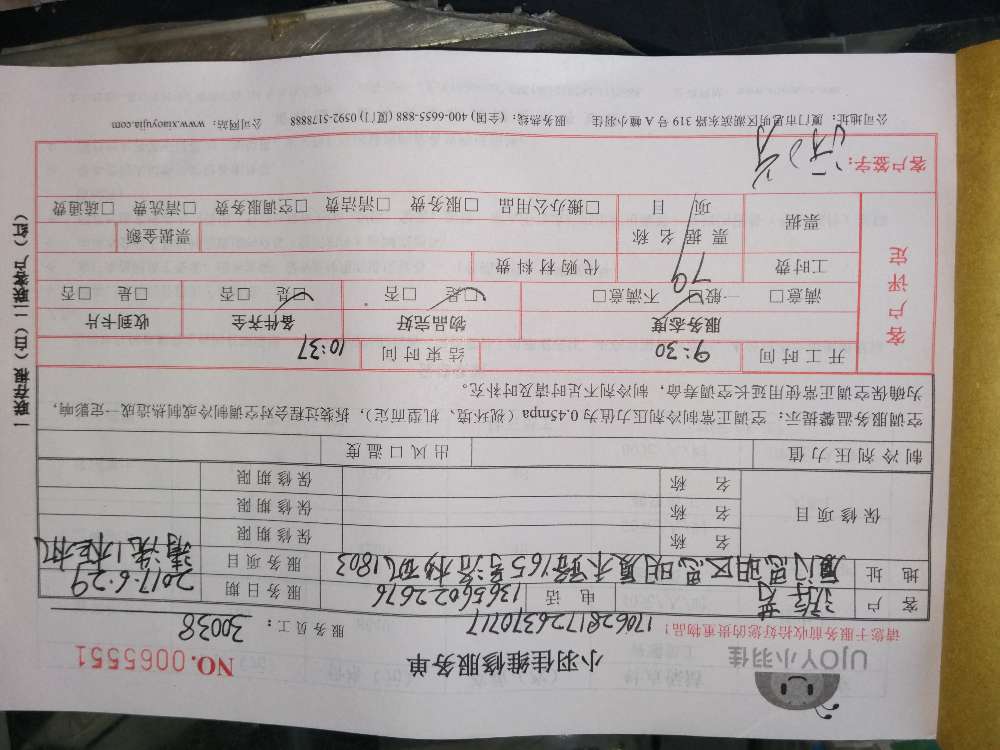 UJOY小羽佳
小羽佳维修服务单
NO.0065551
请您于服务前收拾好您的贵重物品!
1706281726370717
服务员工: 30038
客 户
电 话 13656022676
服务日期 2017.6.29
地 址 厦门思明区思明厦禾路165号 1803
服务项目 清洗1柜机
保修项目
名 称
保修期限
名 称
保修期限
名 称
保修期限
制冷剂压力值
出风口温度
空调服务温馨提示:空调正常制冷剂压力值为0.45mpa(视环境、机型而定),拆装过程会对空调制冷或制热造成一定影响,
为确保空调正常使用延长空调寿命,制冷剂不足时请及时补充。
客户评定
开工时间 9:30 结束时间 10:37
服务态度 物品完好 备件齐全 收到卡片
满意□ 一般□ 不满意□ □是 □否 □是 □否 □是 □否
工时费 79 代购材料费
票据 票据名称 票据金额
项 目 □搬办公用品 □服务费 □清洁费 □空调服务费 □清洗费 □疏通费
客户签字:
公司地址:厦门市思明区湖滨东路319号A幢小羽佳 服务热线:(全国)400-6655-888 (厦门) 0592-5178888 公司网站:www.xiaoyujia.com
一联存根(白)一联客户(红)